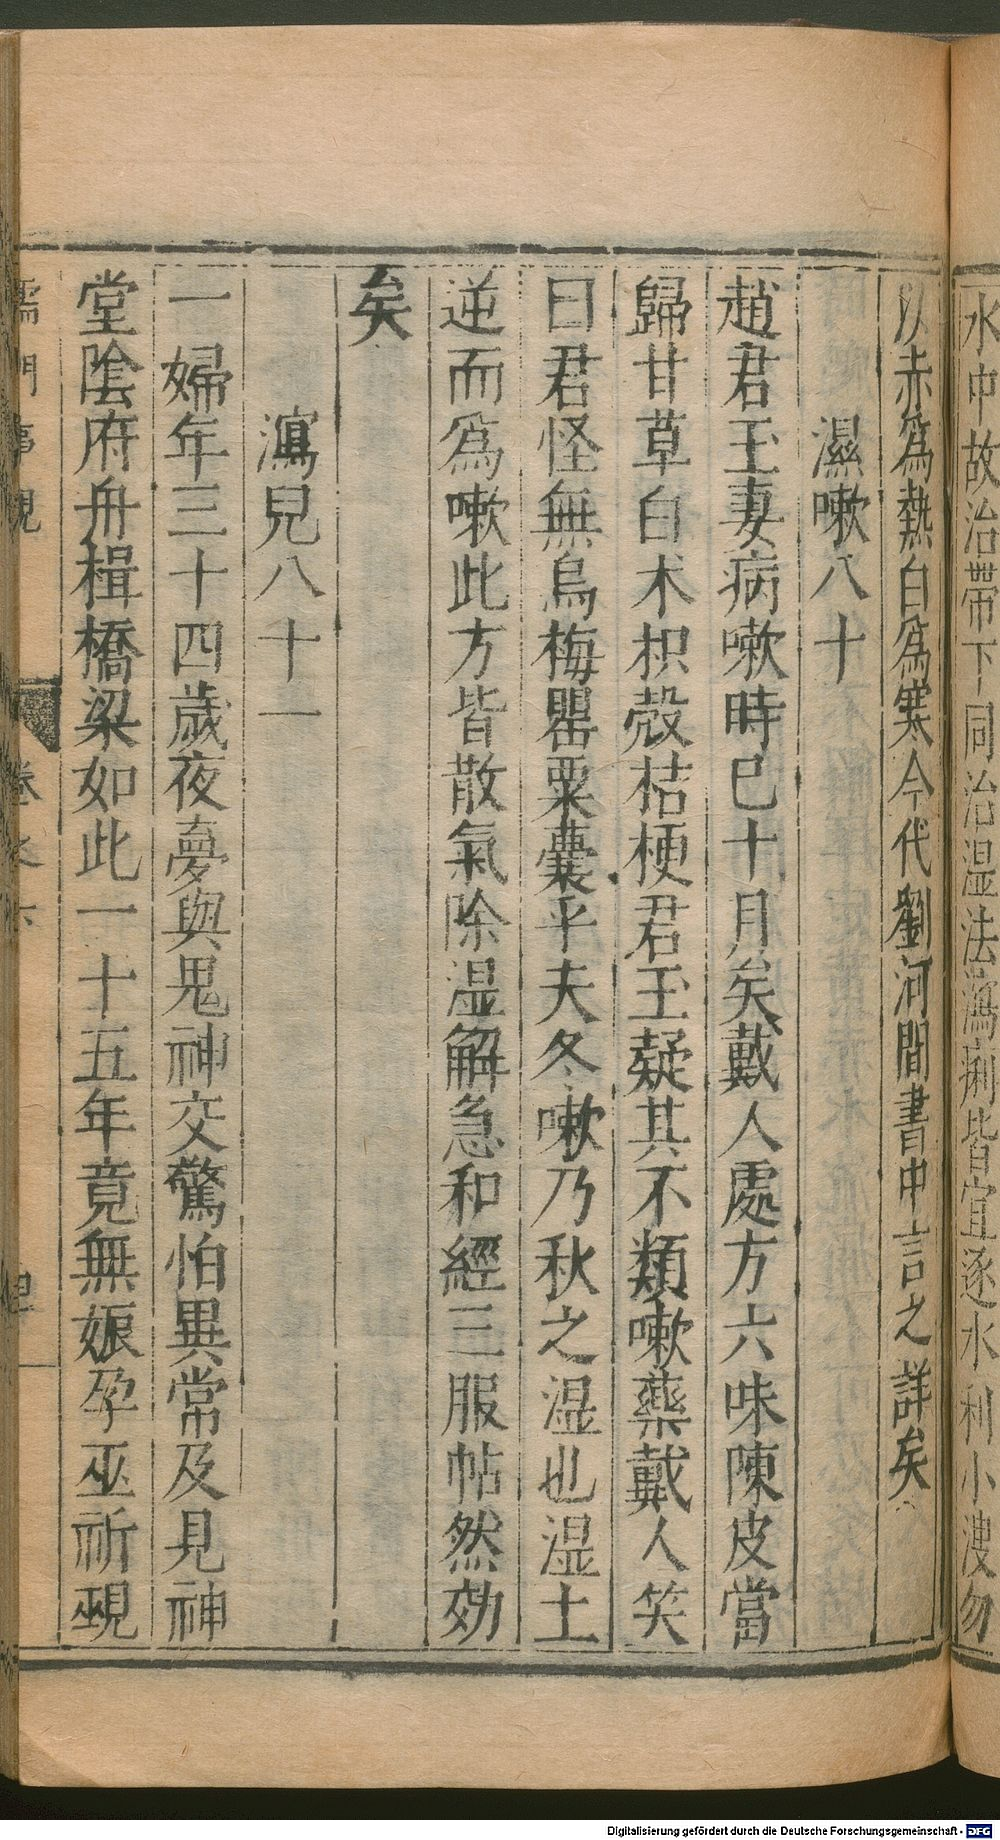 水中故治帶下同治湿法瀉痢皆宜逐水利小溲勿
以赤爲熱白爲寒今代劉河間書中言之詳矣
濕嗽八十
趙君玉妻病嗽時已十月矣戴人處方六味陳皮當
歸甘草白术枳殻桔梗君玉疑其不類嗽藥戴人笑
曰君怪無烏梅罌粟囊乎夫冬嗽乃秋之湿也湿土
逆而爲嗽此方皆散氣除湿解急和經三服帖然効
矣
瀉兒八十一
一婦年三十四歳夜夢與鬼神交驚怕異常及見神
堂陰府舟楫橋梁如此一十五年竟無娠孕巫祈覡
儒門事親 卷之六
Digitalisierung gefördert durch die Deutsche Forschungsgemeinschaft - DFG